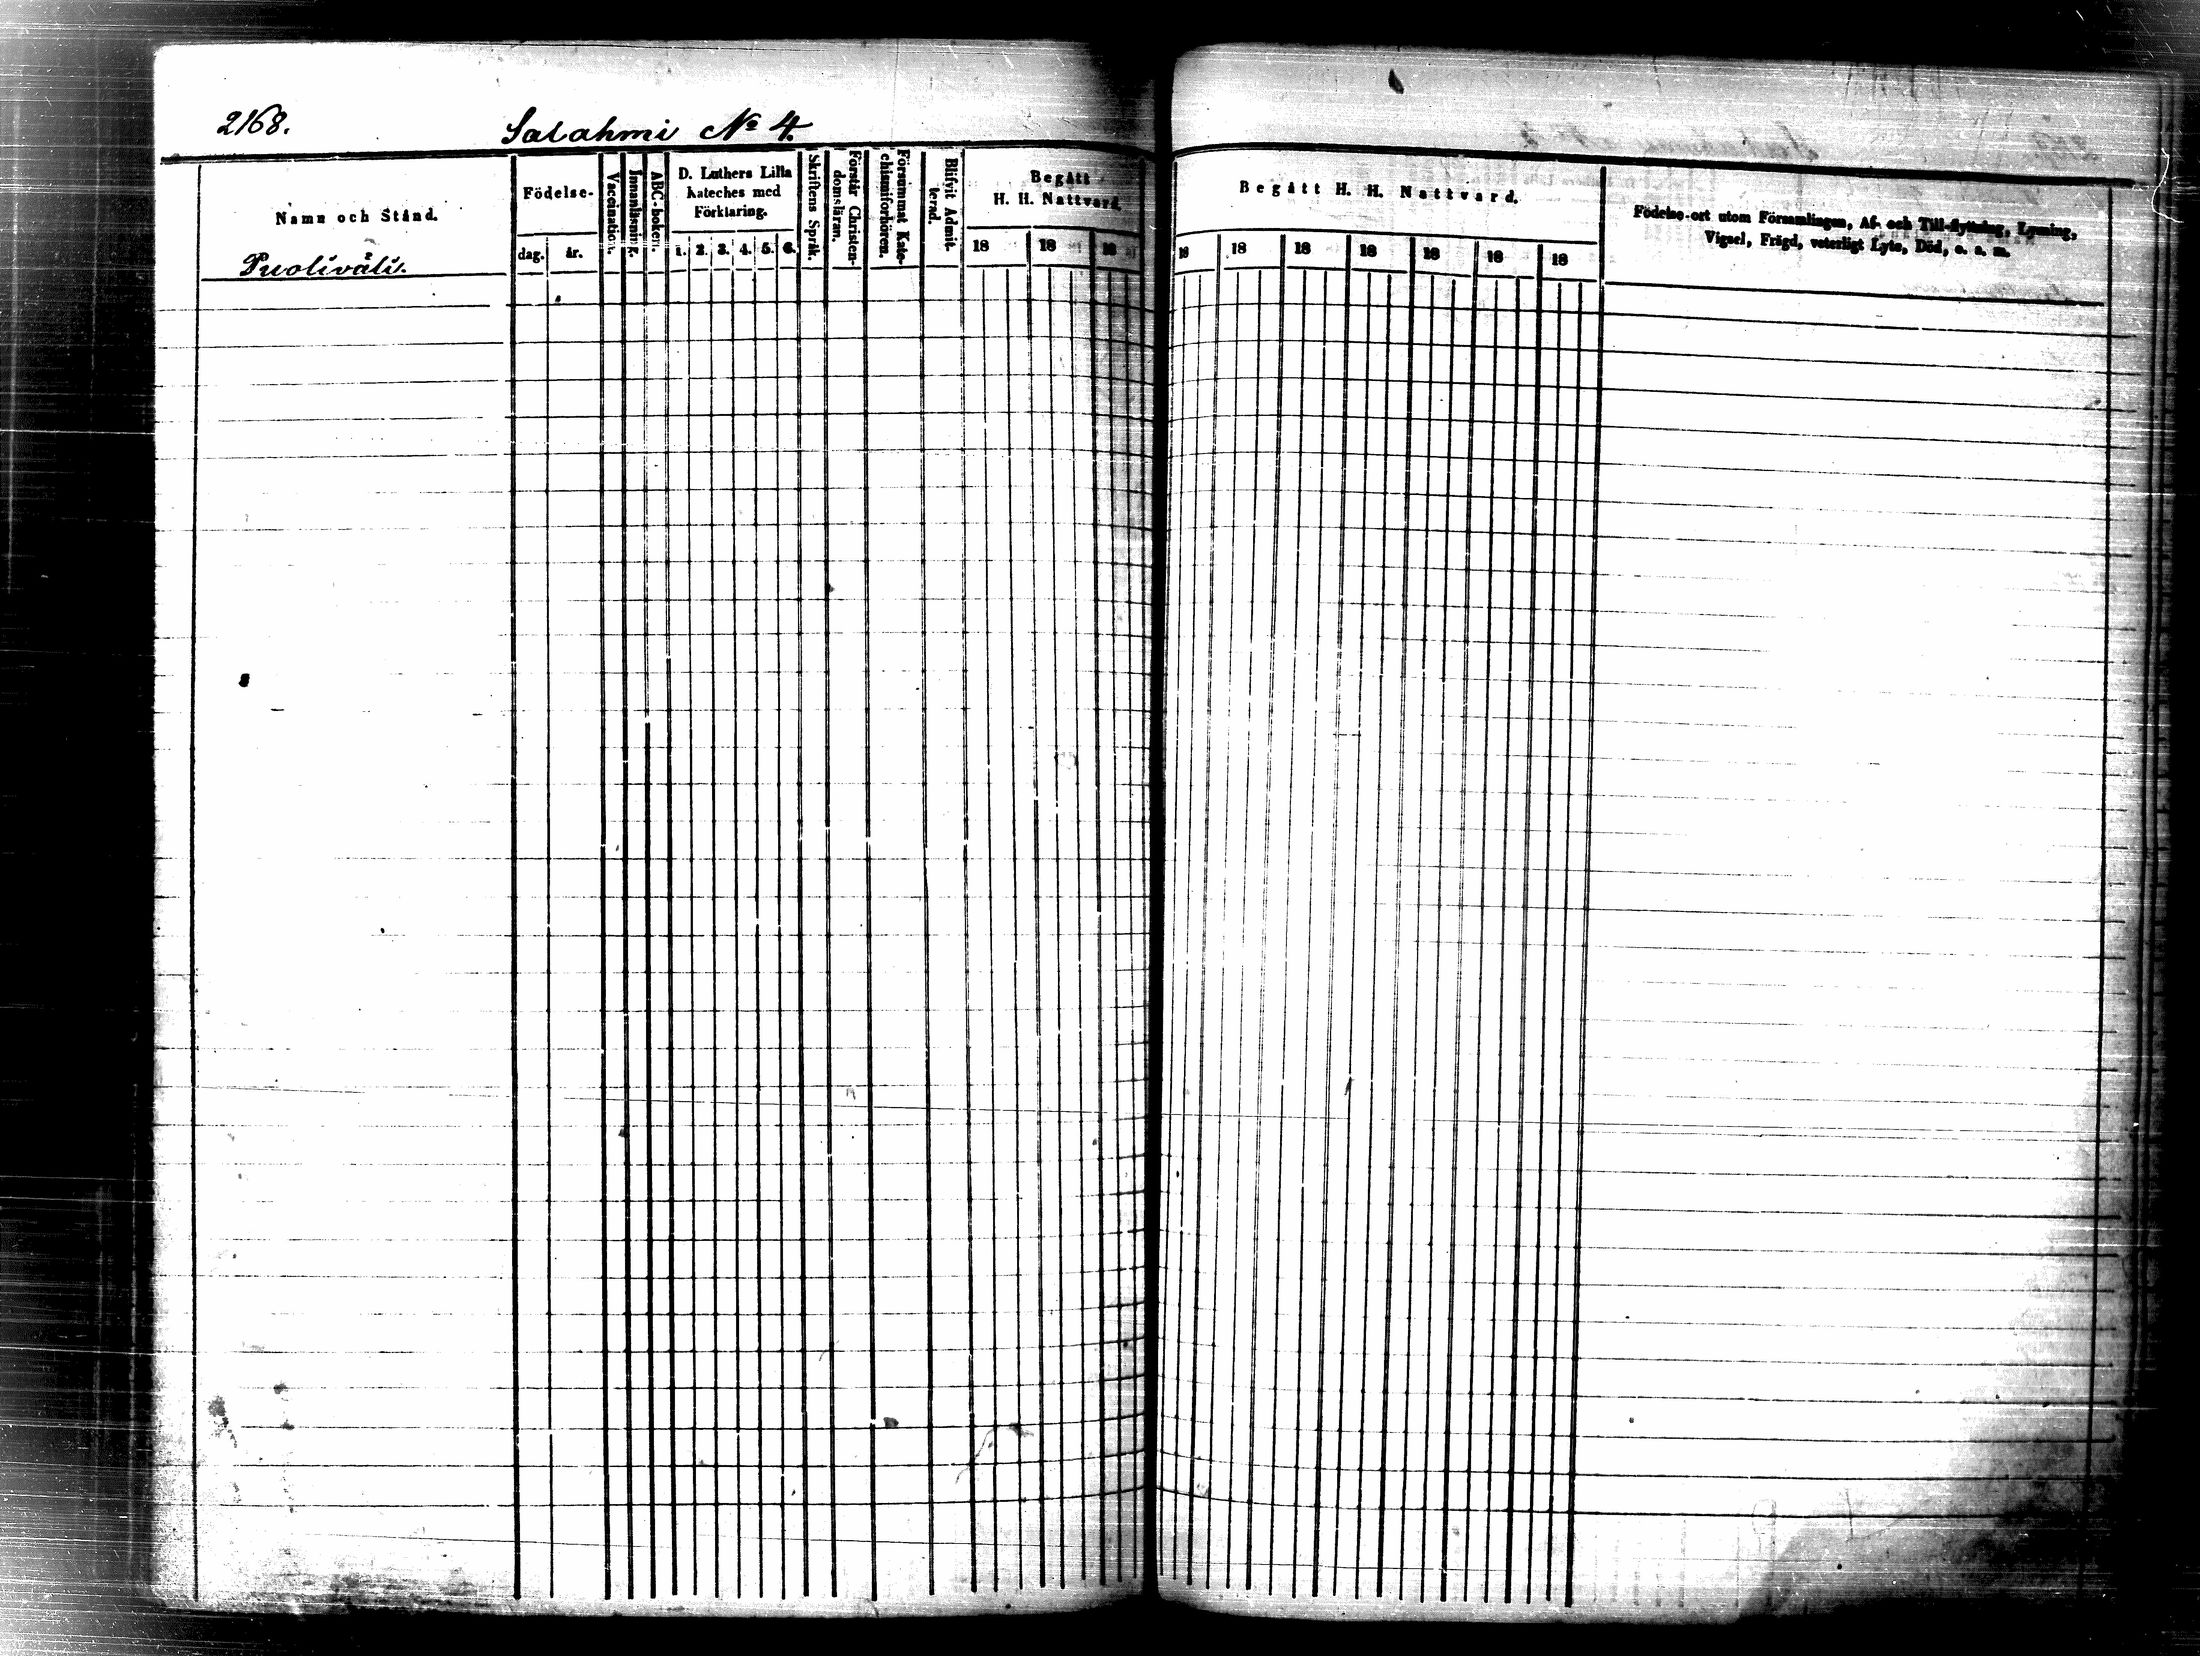 2168.
Salahmi No 4.
Namn och Stånd.
Puoliväli.
Födelse-
dag. år.
Vaccination.
Innanläsning.
ABC-boken.
D. Luthers Lilla
Kateches med
Förklaring.
1. 2. 3. 4. 5. 6.
Skriftens Språk.
Förstår Christen-
domsläran.
Försummat Kate-
chismiförhören.
Blifvit Admit-
terad.
Begått
H. H. Nattvard.
18 18 18
Begått H. H. Nattvard.
18 18 18 18 18 18 18
Födelse-ort utom Församlingen, Af- och Till-flyttning, Lysning,
Vigsel, Frägd, veterligt Lyte, Död, o. s. m.